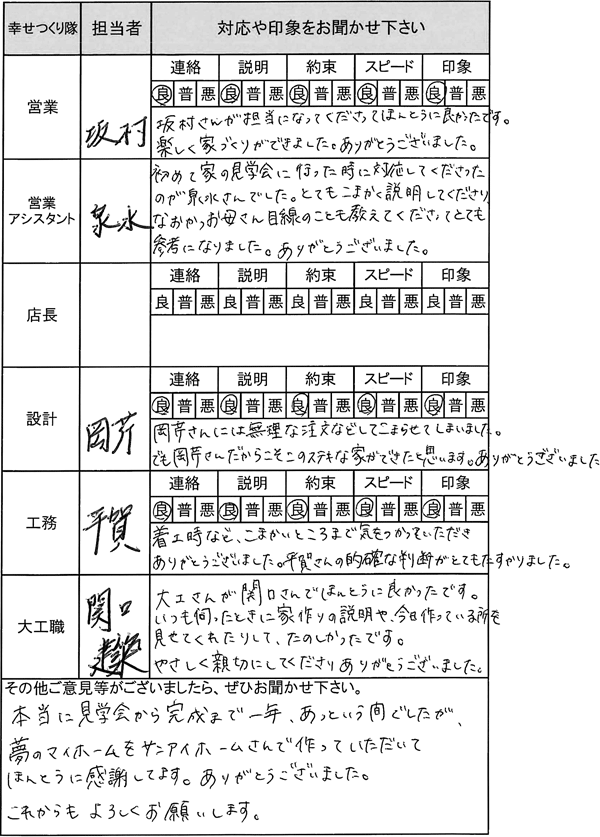 幸せつくり隊 担当者 対応や印象をお聞かせ下さい
営業 坂村
連絡 説明 約束 スピード 印象
良 普 悪 良 普 悪 良 普 悪 良 普 悪 良 普 悪
坂村さんが担当になってくださってほんとうに良かったです。
楽しく家づくりができました。ありがとうございました。
営業
アシスタント 泉水
初めて家の見学会に行った時に対応してくださった
のが泉水さんでした。とてもこまかく説明してくださり
なおかつお母さん目線のことも教えてくださってとても
参考になりました。ありがとうございました。
店長
連絡 説明 約束 スピード 印象
良 普 悪 良 普 悪 良 普 悪 良 普 悪 良 普 悪
設計 岡芹
連絡 説明 約束 スピード 印象
良 普 悪 良 普 悪 良 普 悪 良 普 悪 良 普 悪
岡芹さんには無理な注文などしてこまらせてしまいました。
でも岡芹さんだからこそこのステキな家ができたと思います。ありがとうございました
工務 平賀
連絡 説明 約束 スピード 印象
良 普 悪 良 普 悪 良 普 悪 良 普 悪 良 普 悪
着工時など、こまかいところまで気をつかっていただき
ありがとうございました。平賀さんの的確な判断がとてもたすかりました。
大工職 関口建築
大工さんが関口さんでほんとうに良かったです。
いつも伺ったときに家作りの説明や、今日作っている所を
見せてくれたりして、たのしかったです。
やさしく親切にしてくださりありがとうございました。
その他ご意見等がございましたら、ぜひお聞かせ下さい。
本当に見学会から完成まで一年、あっという間でしたが、
夢のマイホームをサンアイホームさんで作っていただいて
ほんとうに感謝してます。ありがとうございました。
これからもよろしくお願いします。